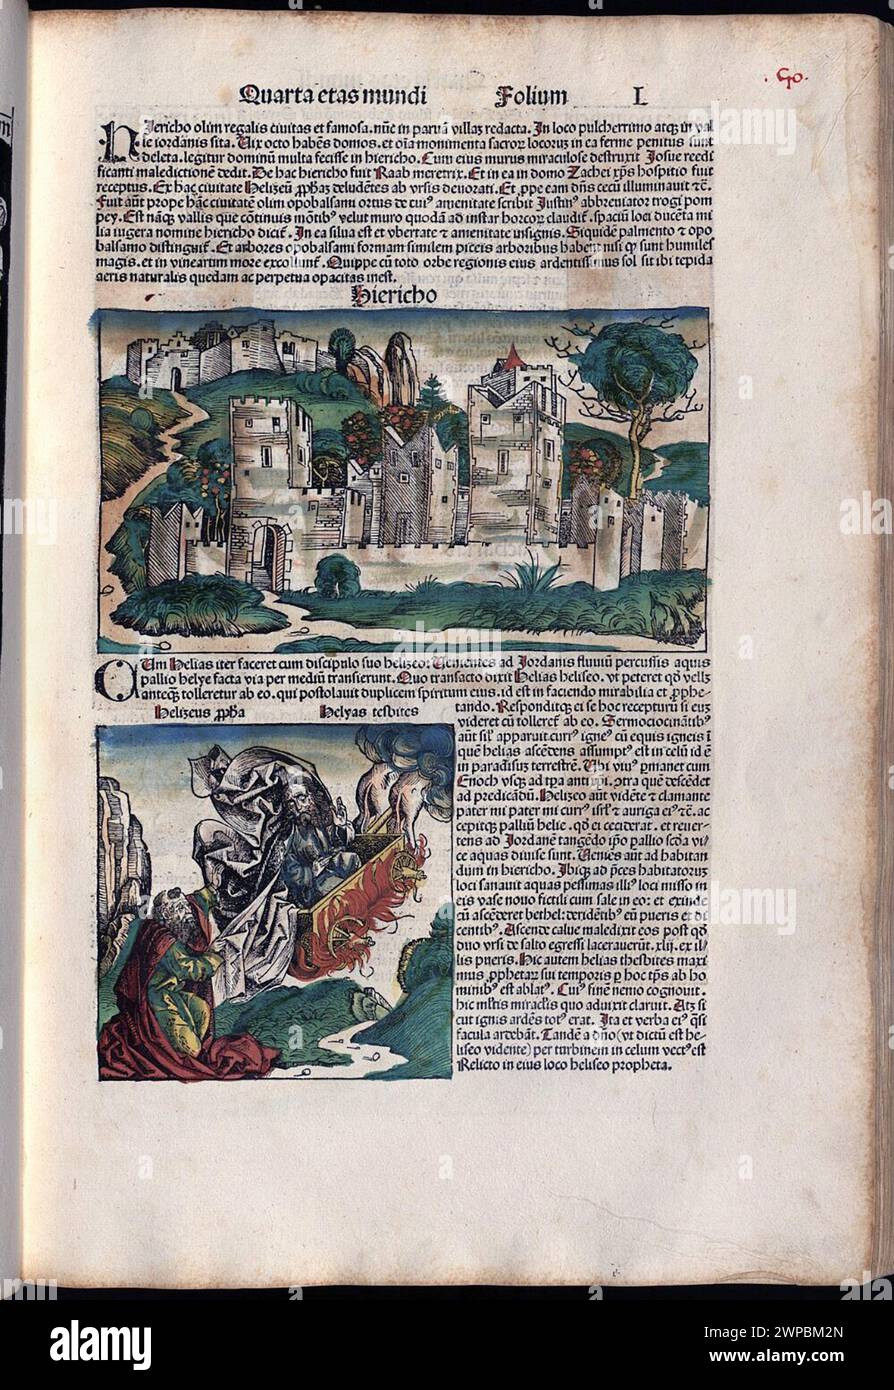 Quarta etas mundi Folium L
HJericho olim regalis ciuitas et famosa. nũc in paruã villaʒ redacta. In loco pulcherrimo atqʒ in val
le iordanis sita. Uix octo habẽs domos. et oĩa monimenta sacroꝝ locoruʒ in ea ferme penitus sunt
deleta. legitur dominũ multa fecisse in hiericho. Cum eius murus miraculose destruxit Josue reedi
ficanti maledictionẽ dedit. De hac hiericho fuit Raab meretrix. Et in ea in domo Zachei xp̃s hospitio fuit
receptus. Ex hac ciuitate Helizeũ ꝓphaʒ deludẽtes ab vrsis deuorati. Et ꝓpe eam dñs cecũ illuminauit ⁊c̃.
Fuit aũt prope hãc ciuitatẽ olim opobalsami ortus de cuiꝰ amenitate scribit Justinꝰ abbreuiator trogi pom
pey. Est nãqʒ vallis que cõtinuis mõtibꝰ velut muro quodã ad instar horroꝝ claudit̃. spaciũ loci ducẽta mi
lia iugera nomine hiericho dicit̃. In ea silua est et vbertate ⁊ amenitate insignis. Siquidẽ palmento ⁊ opo
balsamo distinguit̃. Et arbores opobalsami formam similem piceis arboribus habent nisi ꝙ sunt humiles
magis. et in vinearum more excolunt̃. Quippe cũ toto orbe regionis eius ardentissimus sol sit ibi tepida
aeris naturalis quedam ac perpetua opacitas inest.
Hiericho
CUm Helias iter faceret cum discipulo suo helizeo: Uenientes ad Jordanis fluuiũ percussis aquis
pallio helye facta via per mediũ transierunt. Quo transacto dixit Helias heliseo. vt peteret qđ vellʒ
anteqʒ tolleretur ab eo. qui postolauit duplicem spiritum eius. id est in faciendo mirabilia et ꝓphe-
Helizeus ꝓp̃ha Helyas tesbites
tando. Respondit qʒ ei se hoc recepturũ si euʒ
videret cũ tolleret̃ ab eo. Sermocicinãtibꝰ
aũt sil̃ apparuit curꝰ igneꝰ cũ equis igneis ĩ
quẽ helias ascẽdens assumpt̃ est in celũ id ẽ
in paradisuʒ terrestrẽ. Ubi viuꝰ ꝑmanet cum
Enoch vsqʒ ad tꝑa anti xp̃i. ꝯtra quẽ descẽdet
ad predicãdũ. Helizeo aũt vidẽte ⁊ clamante
pater mi pater mi currꝰ isrl̃ ⁊ auriga eiꝰ ⁊c̃. ac
cepitqʒ palliũ helie. qđ ei ceciderat. et reuer-
tens ad Jordanẽ tangẽdo ip̃o pallio scđa vi-
ce aquas diuise sunt. Uenies aũt ad habitan
dum in hiericho. Ibiqʒ ad p̃ces habitatoruʒ
loci sanauit aquas pessimas illiꝰ loci misso in
eis vase nouo fictili cum sale in eo: et exinde
cũ ascẽderet bethel: deridẽtibꝰ eũ pueris et di
centibꝰ. Ascende calue maledixit eos post qđ
duo vrsi de salto egressi lacerauerũt .xlij. ex il-
lis pueris. Hic autem helias thesbites maxi
mus ꝓphetaʒ sui temporis ꝑ hoc tp̃s ab ho
minibꝰ est ablatꝰ. Cuiꝰ finẽ nemo cognouit.
hic ml̃tis miracl̃is quo aduixit claruit. Atʒ si
cut ignis ardẽs totꝰ erat. Ita et verba eiꝰ q̃si
facula ardebãt. Tandẽ a dño (vt dictũ est he-
liseo vidente) per turbinem in celum vectꝰ est
Relicto in eius loco heliseo propheta.
alamy
Image ID: 2WPBM2N
www.alamy.com